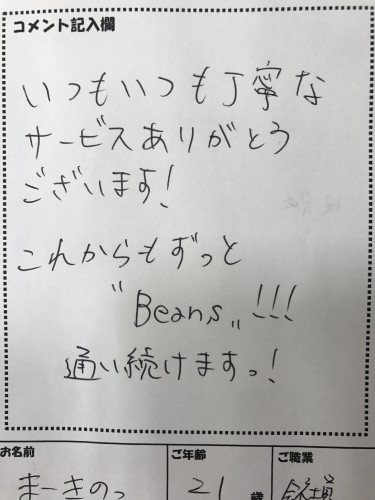 コメント記入欄
いつもいつも丁寧な
サービスありがとう
ございます!
これからもずっと
"Beans"!!!
通い続けますっ!
お名前
ご年齢
ご職業
まーきのっ
21
歳
会社員